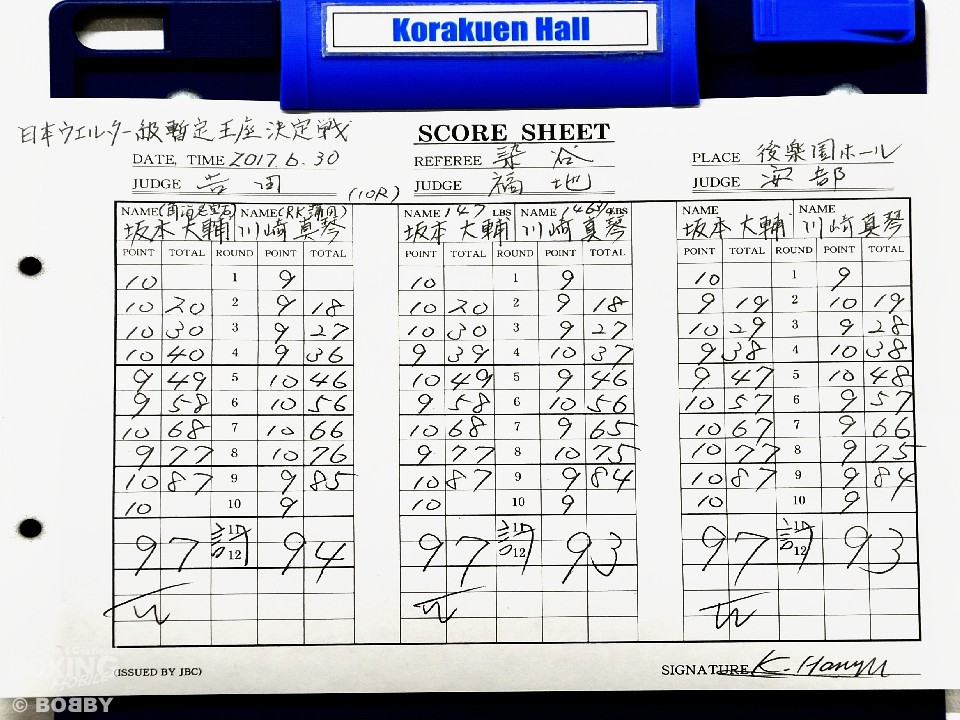 Korakuen Hall
日本ウエルター級暫定王座決定戦
SCORE SHEET
DATE, TIME 2017.6.30
REFEREE 染谷
PLACE 後楽園ホール
JUDGE 吉田
(10R)
JUDGE 福地
JUDGE 安部
NAME (角海老宝石) NAME (RK蒲田) NAME 147 LBS NAME LBS NAME NAME
坂本 大輔 川﨑 真琴 坂本 大輔 川﨑 真琴 坂本 大輔 川﨑 真琴
POINT TOTAL ROUND POINT TOTAL POINT TOTAL ROUND POINT TOTAL POINT TOTAL ROUND POINT TOTAL
10 1 9 10 1 9 10 1 9
10 20 2 9 18 10 20 2 9 18 9 19 2 10 19
10 30 3 9 27 10 30 3 9 27 10 29 3 9 28
10 40 4 9 36 9 39 4 10 37 9 38 4 10 38
9 49 5 10 46 10 49 5 9 46 9 47 5 10 48
9 58 6 10 56 9 58 6 10 56 10 57 6 9 57
10 68 7 10 66 10 68 7 9 65 10 67 7 9 66
9 77 8 10 76 9 77 8 10 75 10 77 8 9 75
10 87 9 9 85 10 87 9 9 84 10 87 9 9 84
10 10 9 10 10 9 10 10 9
97 計 11 12 94 97 計 11 12 93 97 計 11 12 93
W W W
(ISSUED BY JBC)
SIGNATURE K. Hanyu
© BOBBY